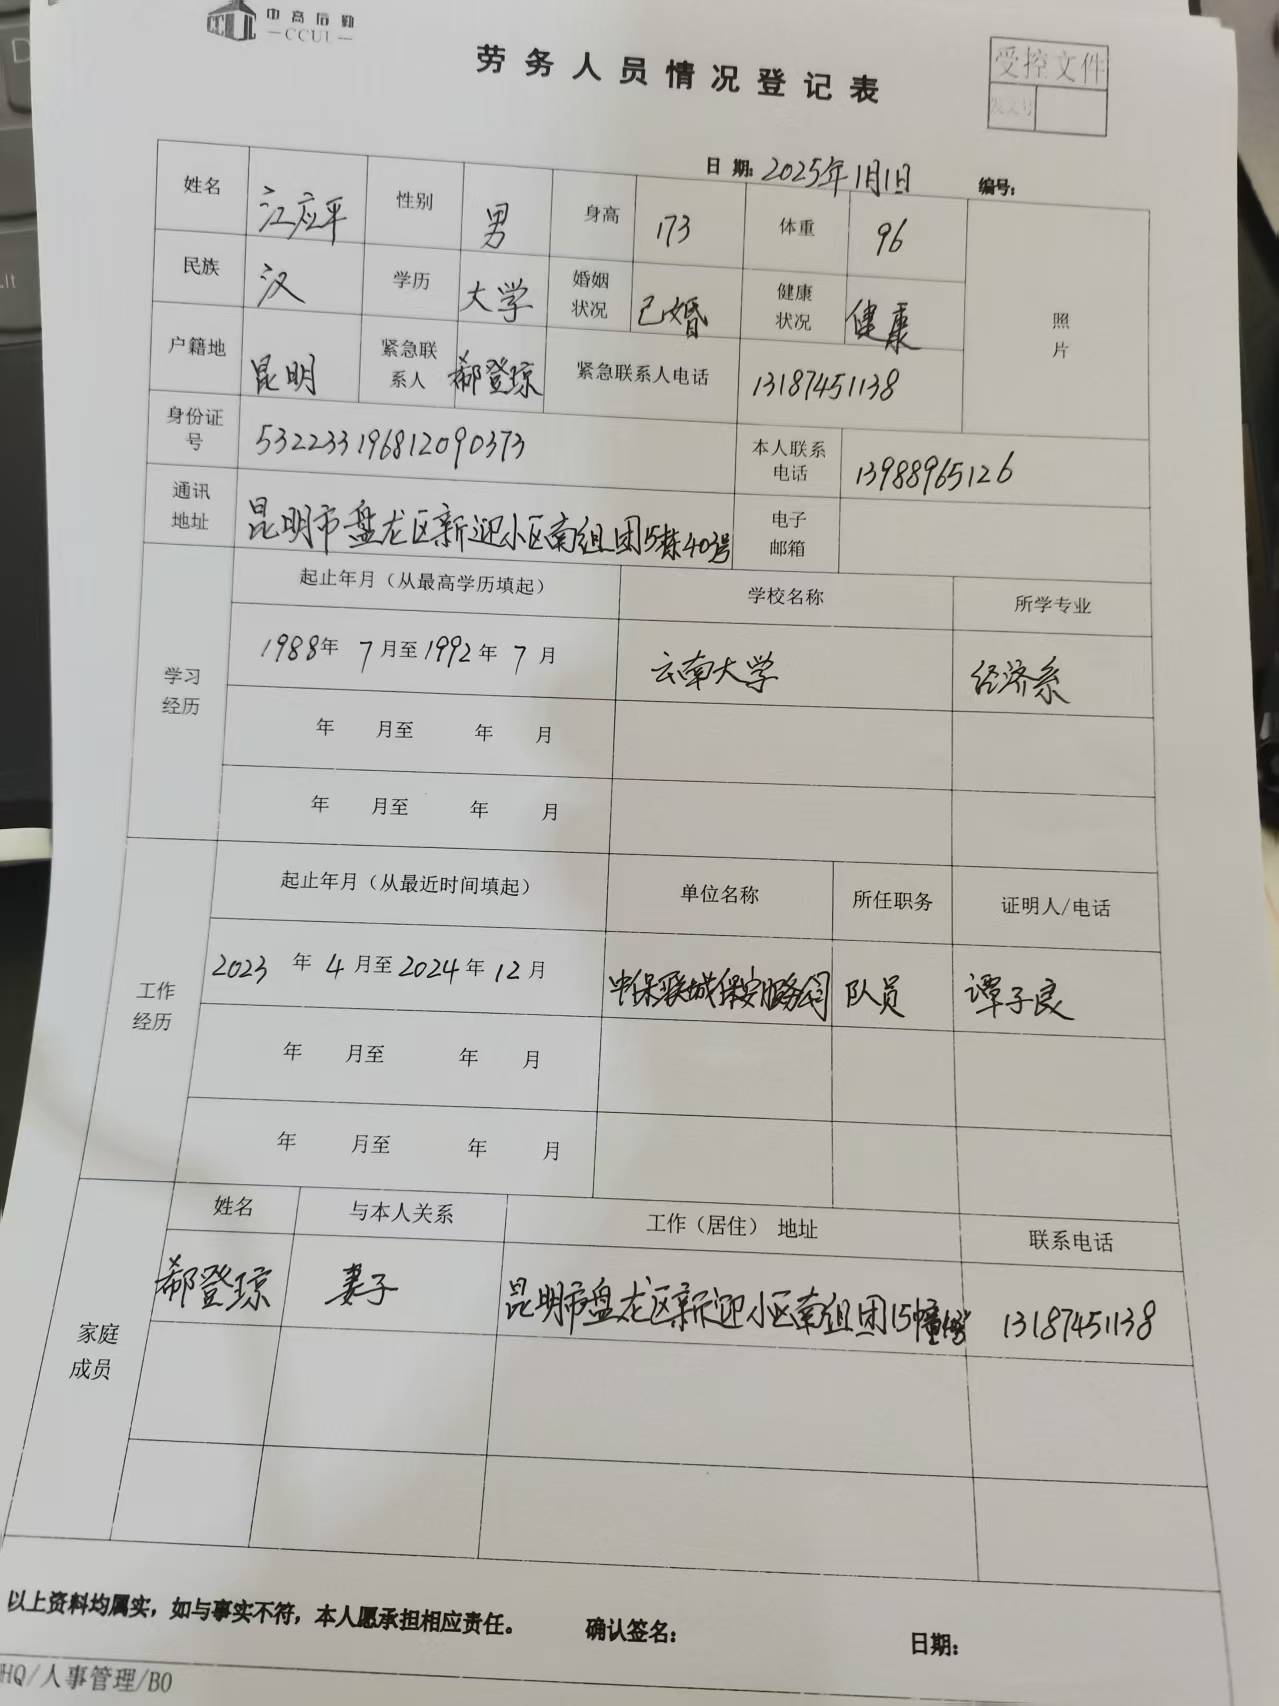 中高后勤
CCUL
劳务人员情况登记表
受控文件
发文号
日期：2025年1月1日 编号：
姓名 江应平 性别 男 身高 173 体重 96
照片
民族 汉 学历 大学 婚姻状况 已婚 健康状况 健康
户籍地 昆明 紧急联系人 郗登琼 紧急联系人电话 13187451138
身份证号 532233196812090373 本人联系电话 13988965126
通讯地址 昆明市盘龙区新迎小区南组团15栋403号 电子邮箱
学习经历
起止年月（从最高学历填起） 学校名称 所学专业
1988年7月至1992年7月 云南大学 经济系
年 月至 年 月
年 月至 年 月
工作经历
起止年月（从最近时间填起） 单位名称 所任职务 证明人/电话
2023年4月至2024年12月 中保联城保安服务公司 队员 谭子良
年 月至 年 月
年 月至 年 月
家庭成员
姓名 与本人关系 工作（居住）地址 联系电话
郗登琼 妻子 昆明市盘龙区新迎小区南组团15幢 13187451138
以上资料均属实，如与事实不符，本人愿承担相应责任。 确认签名： 日期：
HQ/人事管理/B0